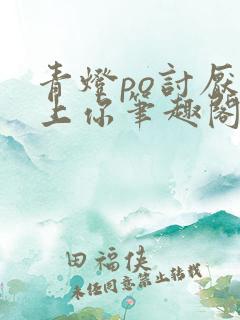 青燈po討厭
上你筆趣閣
田福俠
未经同意禁止转载